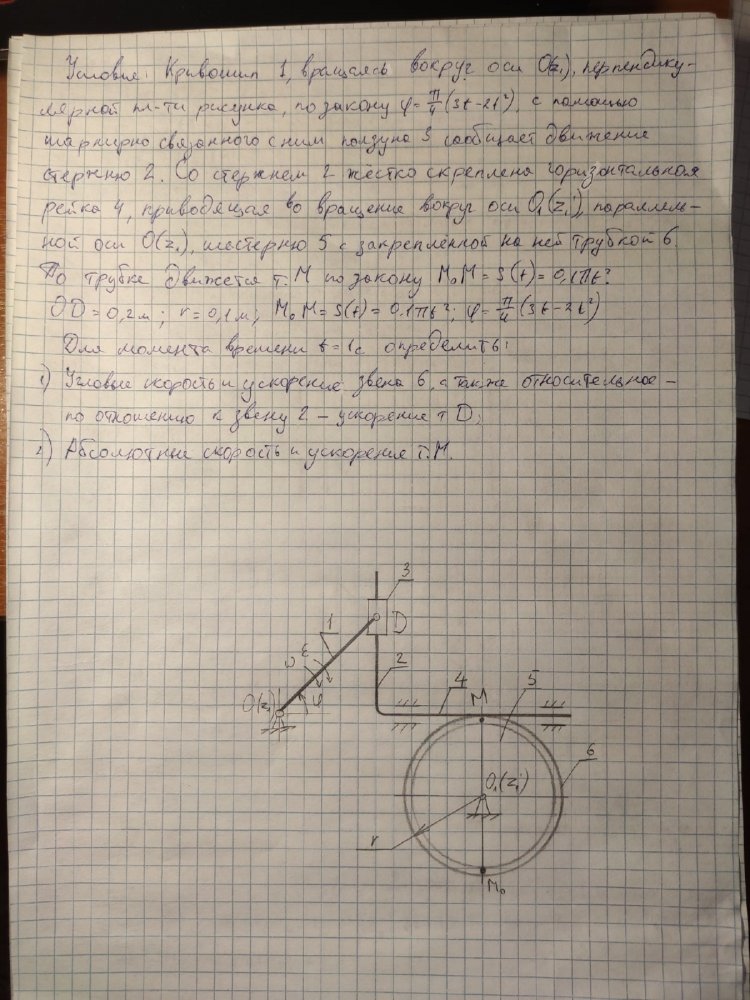 Условие: Кривошип 1, вращаясь вокруг оси O(z₁), перпендику-
лярной пл-ти рисунка, по закону φ=π/4(3t-2t²), с помощью
шарнирно связанного с ним ползуна 3 сообщает движение
стержню 2. Со стержнем 2 жёстко скреплена горизонтальная
рейка 4, приводящая во вращение вокруг оси O₁(z₁'), параллель-
ной оси O(z₁), шестерню 5 с закреплённой на ней трубкой 6.
По трубке движется т. M по закону M₀M=S(t)=0,1πt².
OD=0,2м; r=0,1м; M₀M=S(t)=0,1πt²; φ=π/4(3t-2t²)
Для момента времени t=1с определить:
1) Угловые скорость и ускорение звена 6, а также относительное -
по отношению к звену 2 - ускорение т D;
2) Абсолютные скорость и ускорение т. M.
3
D
1
ω ε
2
O(z₁)
φ
4
M
5
6
O₁(z₁')
r
M₀